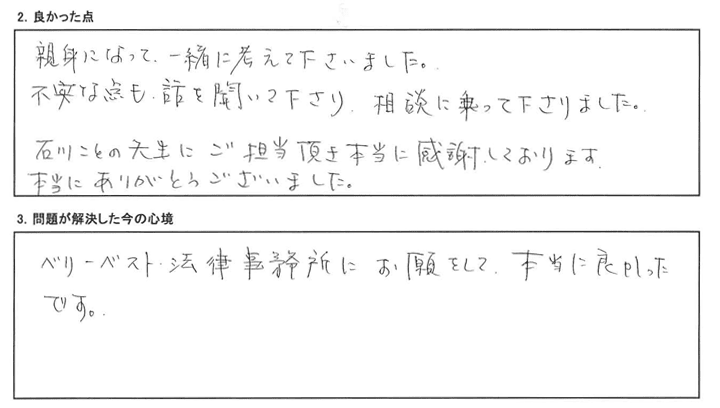 2. 良かった点
親身になって、一緒に考えて下さいました。
不安な点も、話を聞いて下さり、相談に乗って下さりました。
石川ことの先生にご担当頂き本当に感謝しております。
本当にありがとうございました。
3. 問題が解決した今の心境
ベリーベスト法律事務所にお願をして、本当に良かった
です。